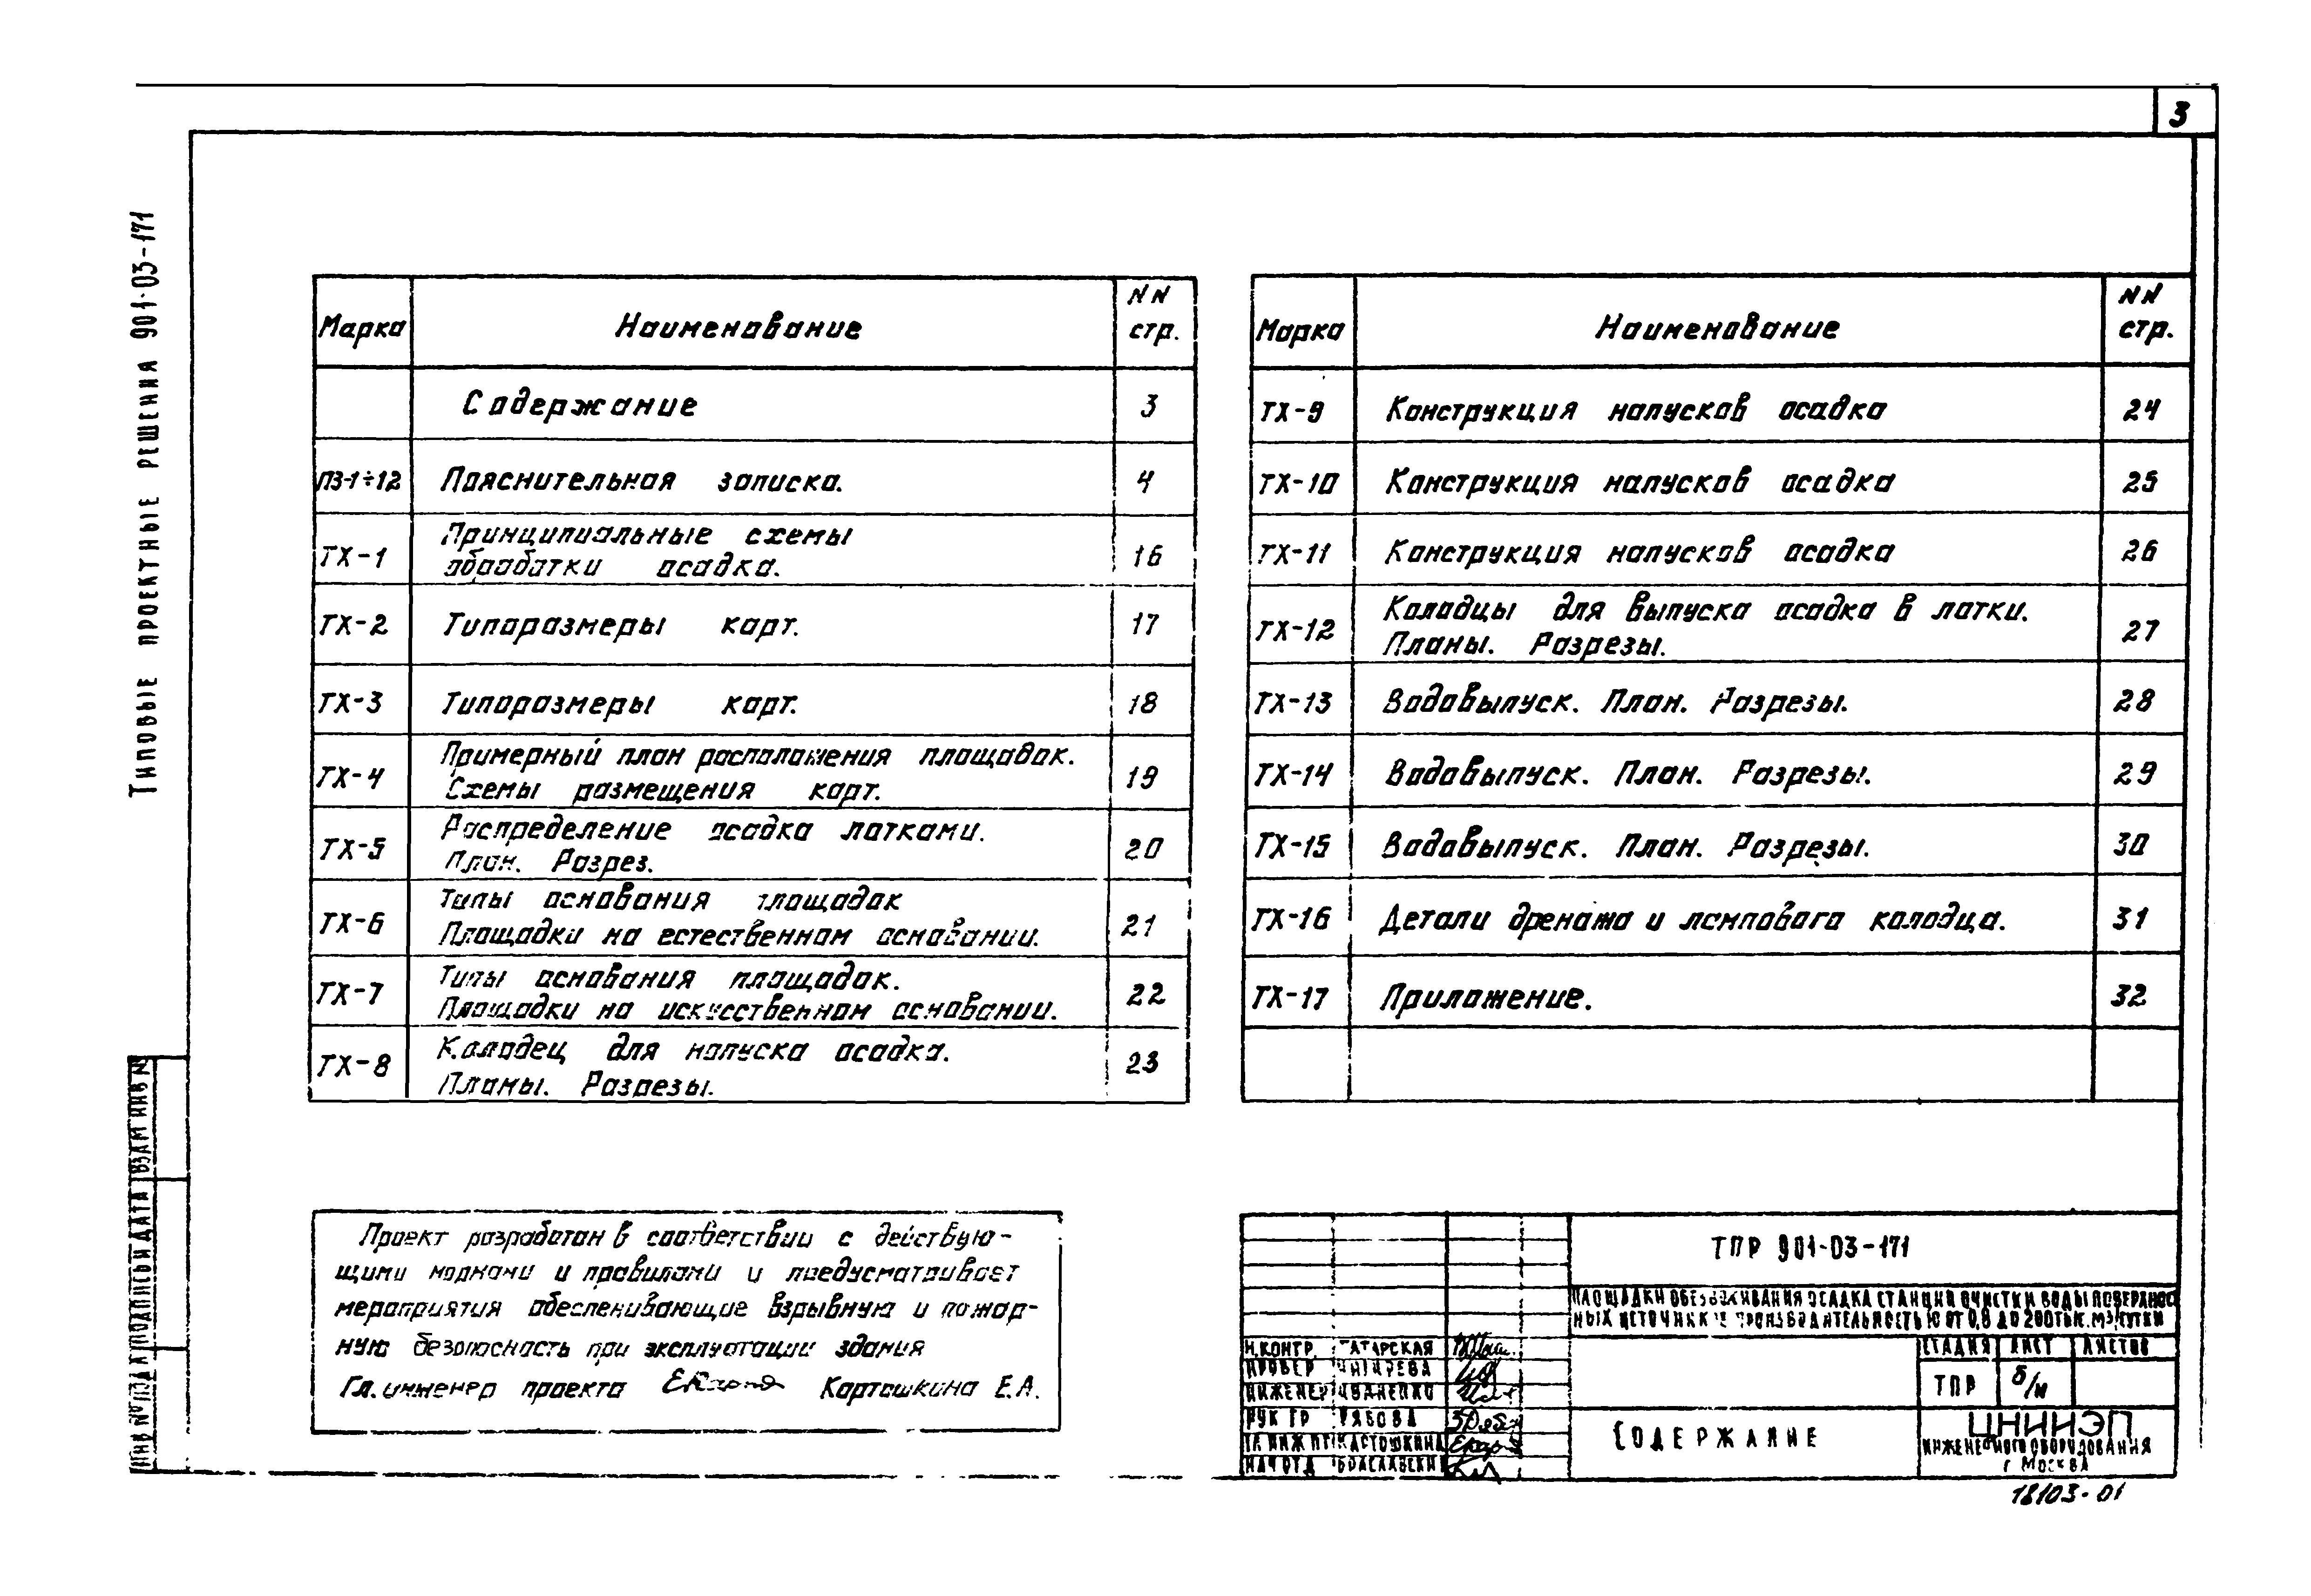 3
Типовые проектные решения 901-03-171
Марка Наименование NN стр.
Содержание 3
ПЗ-1÷12 Пояснительная записка. 4
ТХ-1 Принципиальные схемы
обработки осадка. 16
ТХ-2 Типоразмеры карт. 17
ТХ-3 Типоразмеры карт. 18
ТХ-4 Примерный план расположения площадок.
Схемы размещения карт. 19
ТХ-5 Распределение осадка лотками.
План. Разрез. 20
ТХ-6 Типы основания площадок
Площадки на естественном основании. 21
ТХ-7 Типы основания площадок.
Площадки на искусственном основании. 22
ТХ-8 Колодец для напуска осадка.
Планы. Разрезы. 23
Марка Наименование NN стр.
ТХ-9 Конструкция напусков осадка 24
ТХ-10 Конструкция напусков осадка 25
ТХ-11 Конструкция напусков осадка 26
ТХ-12 Колодцы для выпуска осадка в лотки.
Планы. Разрезы. 27
ТХ-13 Водовыпуск. План. Разрезы. 28
ТХ-14 Водовыпуск. План. Разрезы. 29
ТХ-15 Водовыпуск. План. Разрезы. 30
ТХ-16 Детали дренажа и лотового колодца. 31
ТХ-17 Приложение. 32
Проект разработан в соответствии с действую-
щими нормами и правилами и предусматривает
мероприятия обеспечивающие взрывную и пожар-
ную безопасность при эксплуатации здания
Гл. инженер проекта Картошкина Е.А.
ТПР 901-03-171
Площадки обезвоживания осадка станций очистки воды поверхност
ных источников производительностью от 0,8 до 200 тыс. м3/сутки
Н.контр. Татарская
Провер Чигирева
Инженер Иваненко
Рук гр Рябова
Гл инж пр Картошкина
Нач отд Браславски
Стадия Лист Листов
ТПР б/н
Содержание
ЦНИИЭП
инженерного оборудования
г Москва
18103-01
Инв № подл Подпись и дата Взам инв №